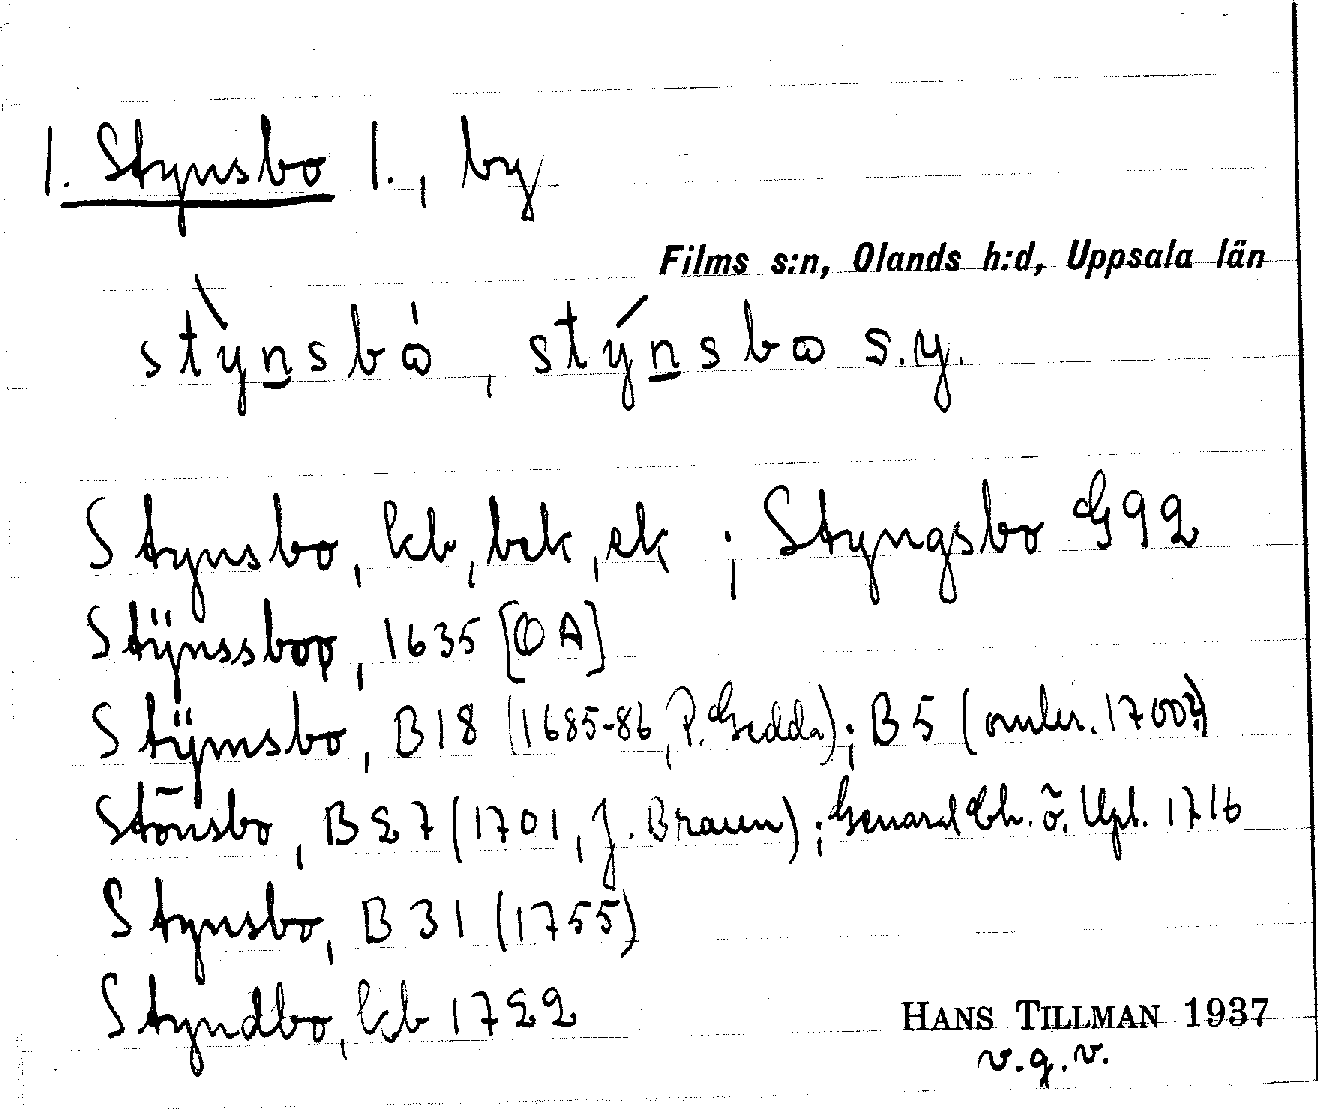 1. Stynsbo 1., by
Films s:n, Olands h:d, Uppsala län
stỳnsbò, stýnsbo s.y.
Stynsbo, kb, bek, ek ; Styngsbo G92
Stÿnssboo, 1635 [ÖA]
Stÿmsbo, B18 (1685-86, P. Gedda); B5 (omkr. 1700?)
Stōnsbo, B27 (1701, J. Braun); General Ch. ö. Upl. 1716
Stynsbo, B31 (1755)
Styndbo, kb 1722
HANS TILLMAN 1937
v.g.v.